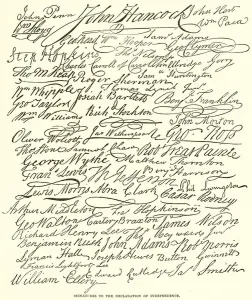 John Penn John Hancock John Hart
Wm Floyd Wm Paca
Gerhard Wm Hooper Sam Adams
Step Hopkins Geo Clymer
Charles Carroll of Carrollton Elbridge Gerry
Tho M:Kean Roger Sherman Sam Huntington
Wm Whipple Thomas Lynch Jr
Geo Taylor Josiah Bartlett Benj Franklin
Wm Williams Rich Stockton
John Morton
Oliver Wolcott Jas Witherspoon Geo Ross
Tho Stone Samuel Chase Rob Treat Paine
George Wythe Matthew Thornton
Fran Lewis Benj Harrison
Lewis Morris Abra Clark Phil Livingston
Cæsar Rodney
Arthur Middleton Fra Hopkinson
Geo Walton Carter Braxton James Wilson
Richard Henry Lee Tho Heyward Junr
Benjamin Rush John Adams Rob Morris
Lyman Hall Joseph Hewes Button Gwinnett
Francis Lightfoot Lee
William Ellery Edward Rutledge Jas Smith
SIGNATURES TO THE DECLARATION OF INDEPENDENCE.